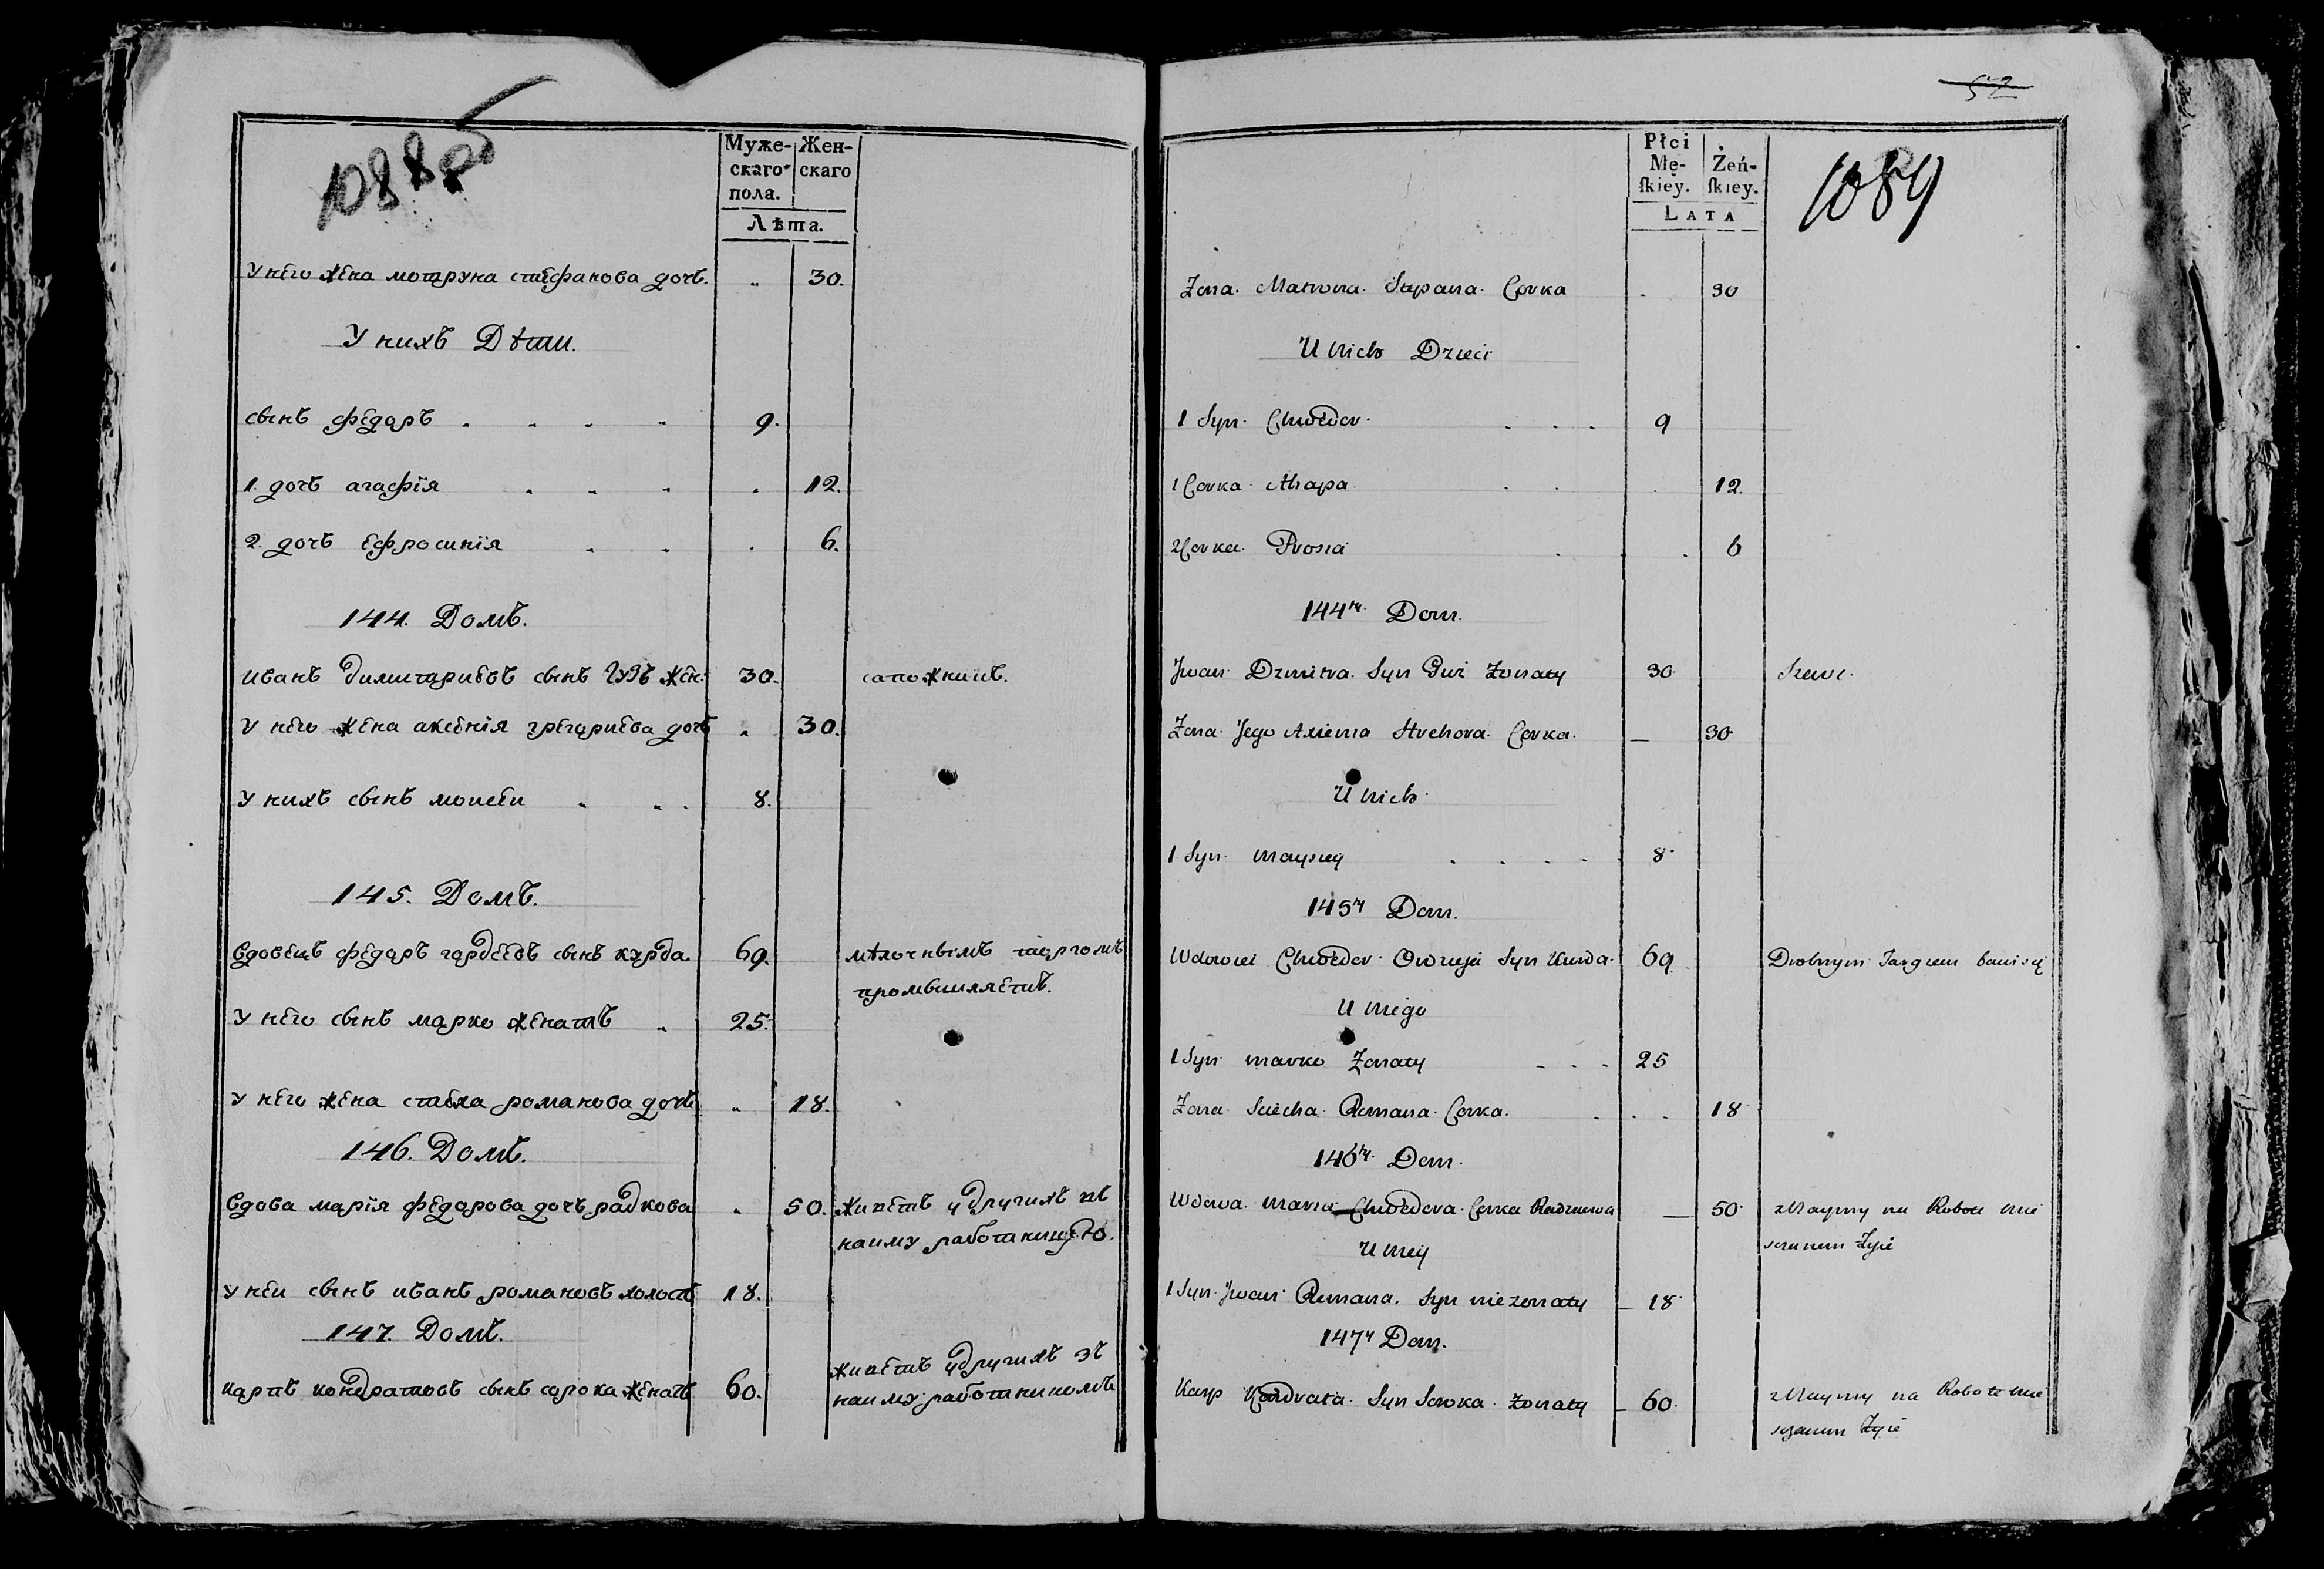 1088 об
Муже-
скаго
пола.
Жен-
скаго
Лѣта.
У него жена мотруна стефанова дочь. „ 30.
У нихъ Дѣти.
сынъ федоръ 9.
1. дочь агафїя 12.
2. дочь Ефросинїя 6.
144. Домъ.
иванъ димитариевъ сынъ гузъ жен: 30. сапожникъ.
У него жена аксенїя грегориева дочь „ 30.
У нихъ сынъ моисей 8.
145. Домъ.
вдовецъ федоръ гордеевъ сынъ курда 69. мѣлочнымъ торгомъ
промышляетъ.
У него сынъ марко женатъ „ 25.
У него жена стеха романова дочь „ 18.
146. Домъ.
вдова марїя федорова дочь радкова „ 50. живетъ у другихъ въ
найму работницею.
У неи сынъ иванъ романовъ холостъ 18.
147. Домъ.
карпъ кондратовъ сынъ сорока женатъ 60. живетъ у другихъ въ
найму работникомъ
52
1089
Płci
Mę-
ſkiey.
Żeń-
ſkiey.
LATA
Zona Matrona Stepana Corka 30
U Nich Dzieci
1 Syn Chwedor 9
1 Corka Ahapa 12.
2 Corka Prosia 6
144ty Dom.
Jwan Dzmitra Syn Guz Zonaty 30 Szewc.
Zona Jego Axienia Hrehora Corka — 30
U Nich
1 Syn Maysiey 8
145ty Dom.
Wdowiec Chwedor Syn Kurda 69 Drobnym Targiem bawi się
U Niego
1 Syn Marko Zonaty 25
Zona Sciecha Romana Corka. 18
146ty Dom.
Wdowa Maria Chwedora Corka — 50 z Naymy na Robote
Zyie
U Niey
1 Syn Jwan Romana Syn niezonaty 18
147ty Dom.
Karp Kondrata Syn Soroka Zonaty 60 z Naymy na Robote
Zyie